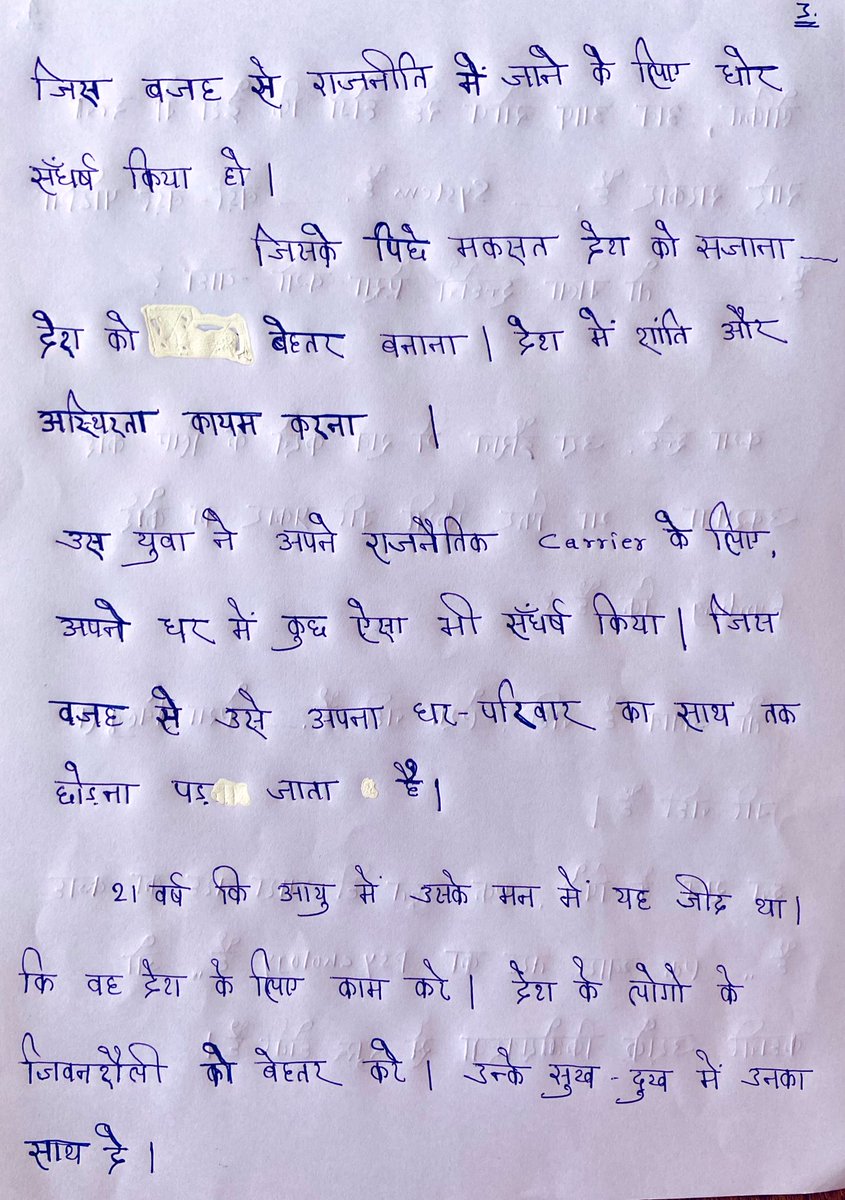 3.
जिस वजह से राजनीति में जाने के लिए घोर
सँघर्ष किया हो |
जिसके पिछे मकसत देश को सजाना —
देश को बेहतर बनाना | देश में शांति और
अस्थिरता कायम करना |
उस युवा ने अपने राजनैतिक Carrier के लिए,
अपने घर में कुछ ऐसा भी सँघर्ष किया | जिस
वजह से उसे अपना घर-परिवार का साथ तक
छोड़ना पड़ जाता है |
21 वर्ष कि आयु में उसके मन में यह जीद था |
कि वह देश के लिए काम करे | देश के लोगो के
जिवनशैली को बेहतर करे | उनके सुख-दुख में उनका
साथ दे |